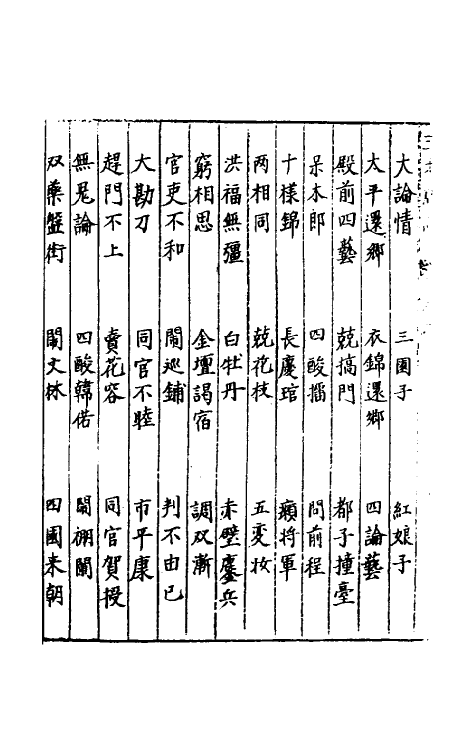 大論情　三園子　紅娘子
太平還郷　衣錦還郷　四論藝
殿前四藝　競搞門　都子撞臺
呆木郎　四酸擂　問前程
十樣錦　長慶琯　癩將軍
兩相同　競花枝　五変妆
洪福無彊　白牡丹　赤壁鏖兵
窮相思　金壇謁宿　調双漸
官吏不和　鬧巡鋪　判不由已
大勘刀　同官不睦　市平康
趕門不上　賣花容　同官賀授
無鬼論　四酸韓偌　鬧棚闌
双藥盤街　鬧文林　四國来朝